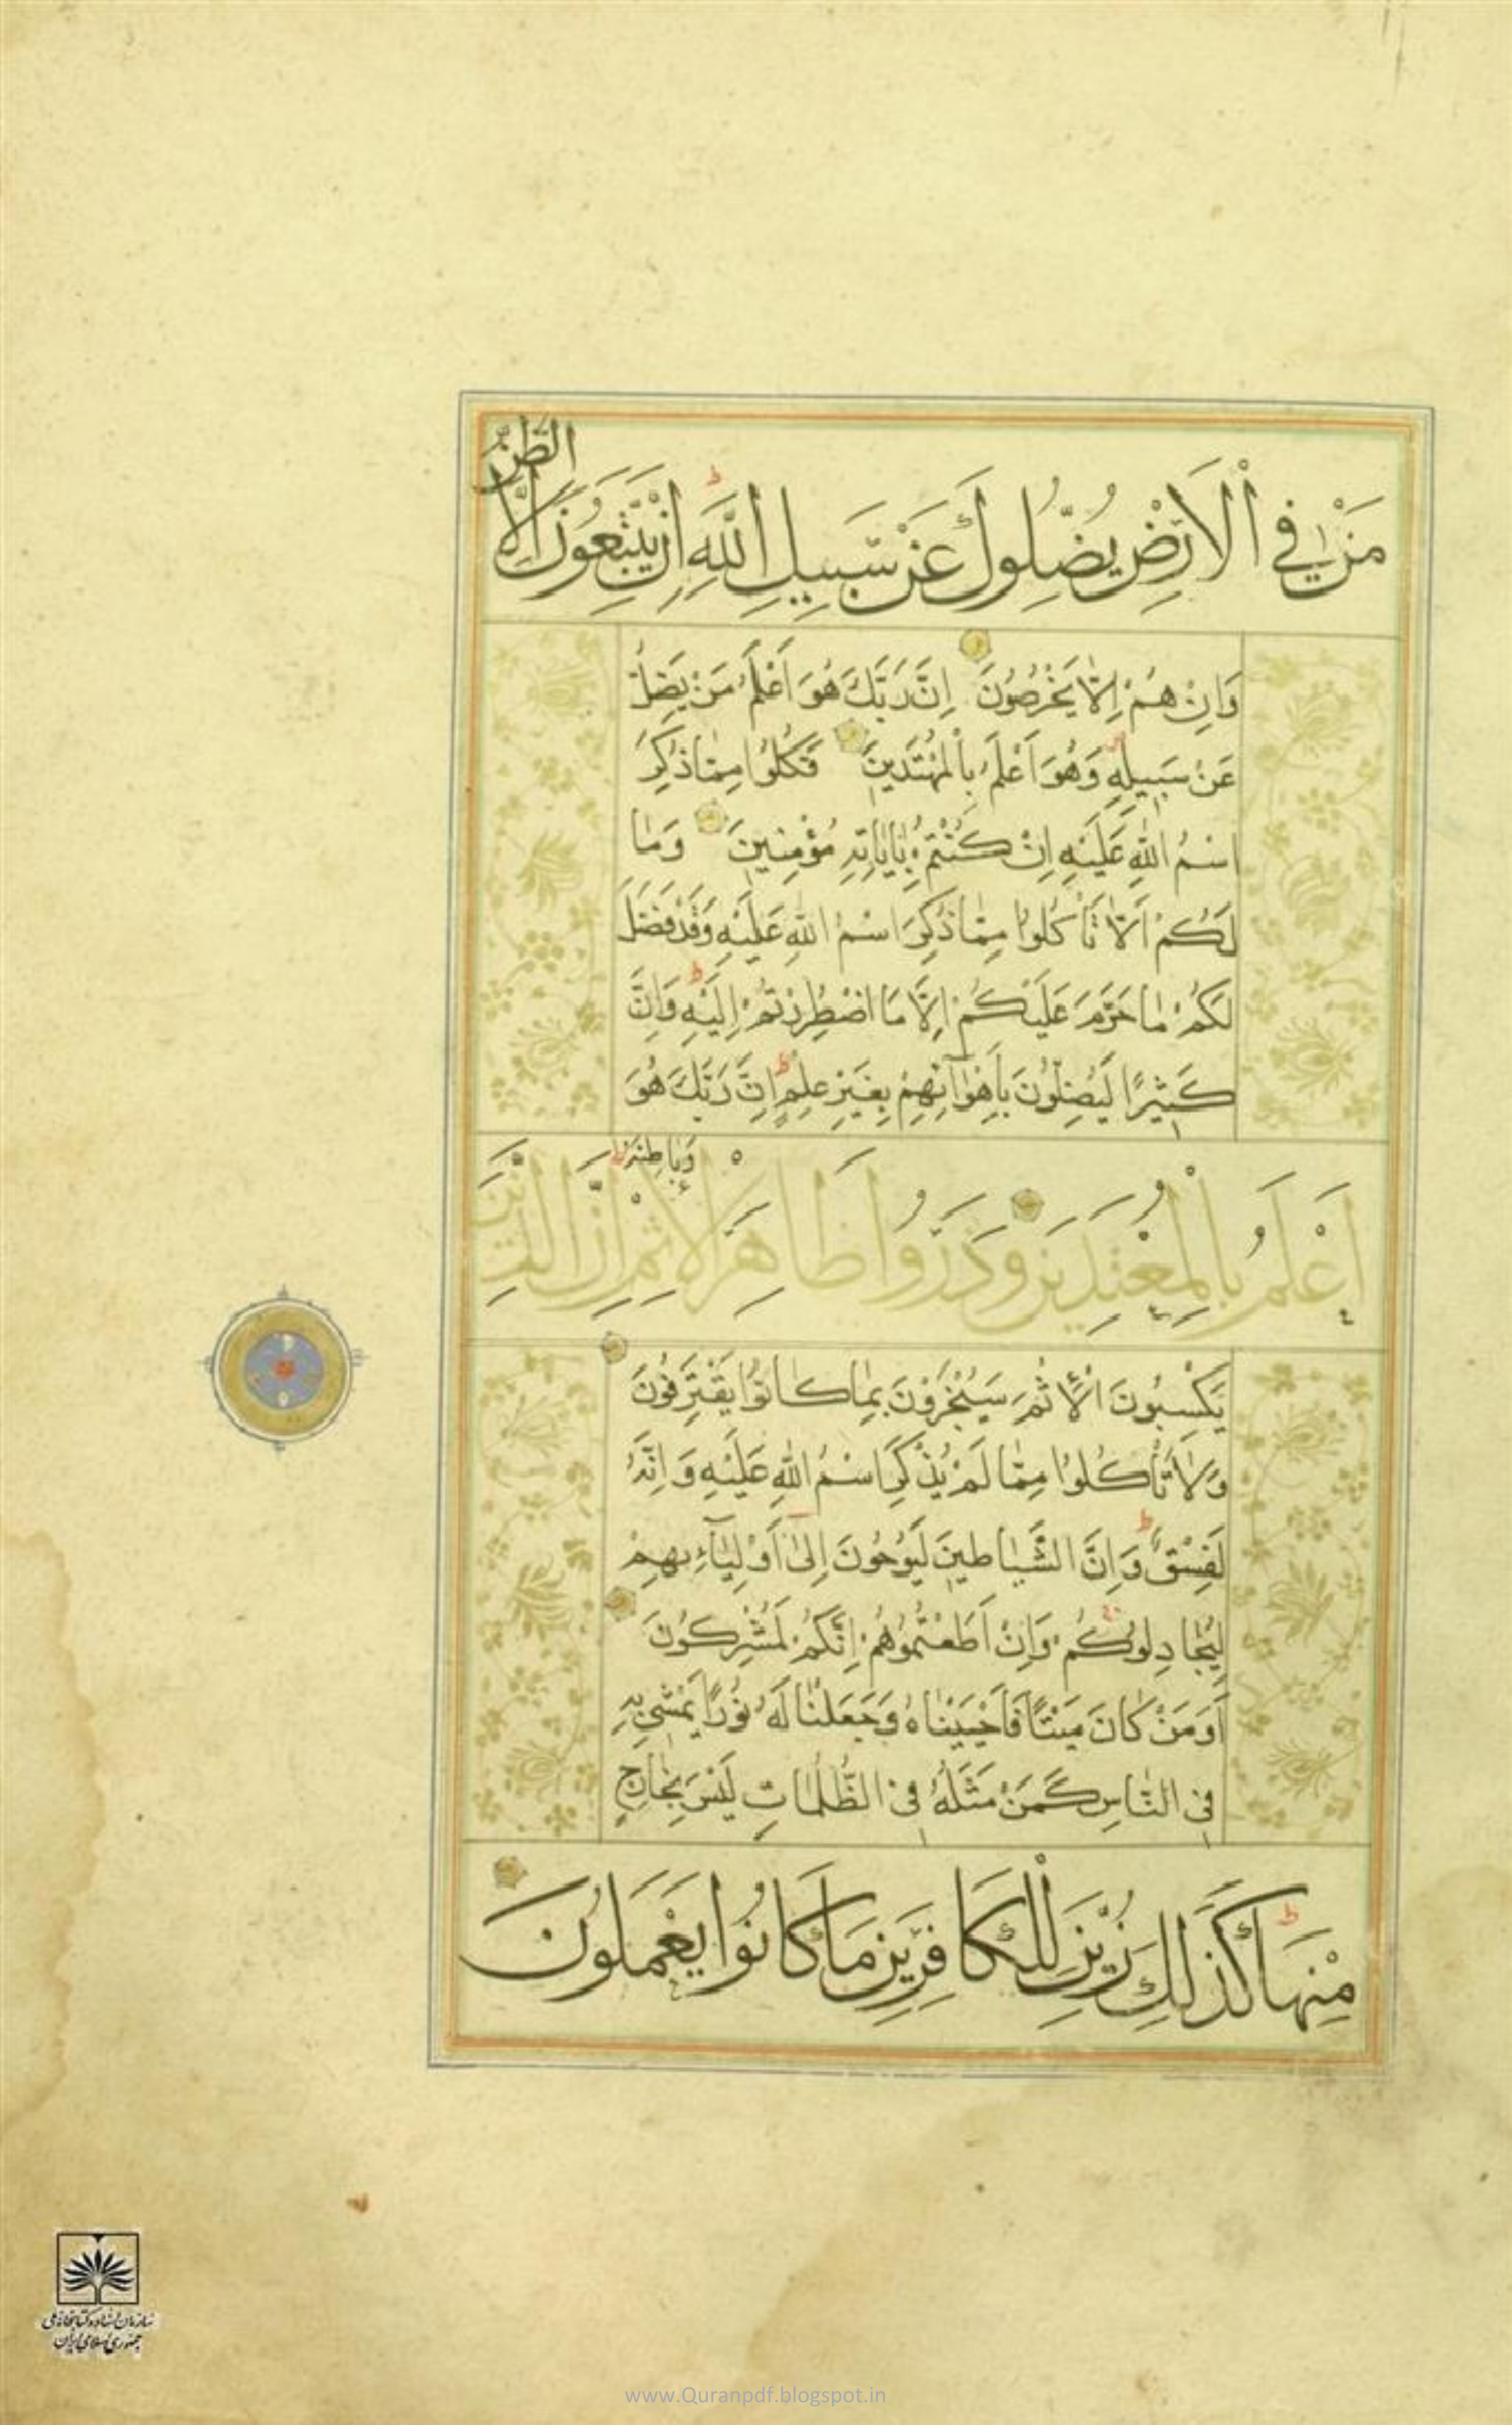 مَنْ فِي ٱلْاَرْضِ يُضِلُّوكَ عَنْ سَبِيلِ اللّٰهِ ط اِنْ يَتَّبِعُونَ اِلَّا الظَّنَّ
وَاِنْ هُمْ اِلَّا يَخْرُصُونَ اِنَّ رَبَّكَ هُوَ اَعْلَمُ مَنْ يَضِلُّ
عَنْ سَبِيلِهِ وَهُوَ اَعْلَمُ بِالْمُهْتَدِينَ فَكُلُوا مِمَّا ذُكِرَ
اسْمُ اللّٰهِ عَلَيْهِ اِنْ كُنْتُمْ بِاٰيَاتِهِ مُؤْمِنِينَ وَمَا
لَكُمْ اَلَّا تَأْكُلُوا مِمَّا ذُكِرَ اسْمُ اللّٰهِ عَلَيْهِ وَقَدْ فَصَّلَ
لَكُمْ مَا حَرَّمَ عَلَيْكُمْ اِلَّا مَا اضْطُرِرْتُمْ اِلَيْهِ ط وَاِنَّ
كَثِيرًا لَيُضِلُّونَ بِاَهْوَآئِهِمْ بِغَيْرِ عِلْمٍ ط اِنَّ رَبَّكَ هُوَ
اَعْلَمُ بِالْمُعْتَدِينَ وَذَرُوا ظَاهِرَ الْاِثْمِ وَبَاطِنَهُ ط اِنَّ الَّذِينَ
يَكْسِبُونَ الْاِثْمَ سَيُجْزَوْنَ بِمَا كَانُوا يَقْتَرِفُونَ
وَلَا تَأْكُلُوا مِمَّا لَمْ يُذْكَرِ اسْمُ اللّٰهِ عَلَيْهِ وَاِنَّهُ
لَفِسْقٌ ط وَاِنَّ الشَّيَاطِينَ لَيُوحُونَ اِلَىٰ اَوْلِيَآءِهِمْ
لِيُجَادِلُوكُمْ وَاِنْ اَطَعْتُمُوهُمْ اِنَّكُمْ لَمُشْرِكُونَ
اَوَمَنْ كَانَ مَيْتًا فَاَحْيَيْنَاهُ وَجَعَلْنَا لَهُ نُورًا يَمْشِي بِهِ
فِي النَّاسِ كَمَنْ مَثَلُهُ فِي الظُّلُمَاتِ لَيْسَ بِخَارِجٍ
مِنْهَا ط كَذٰلِكَ زُيِّنَ لِلْكَافِرِينَ مَا كَانُوا يَعْمَلُونَ
سازمان اسناد و کتابخانه ملی
جمهوری اسلامی ایران
www.Quranpdf.blogspot.in